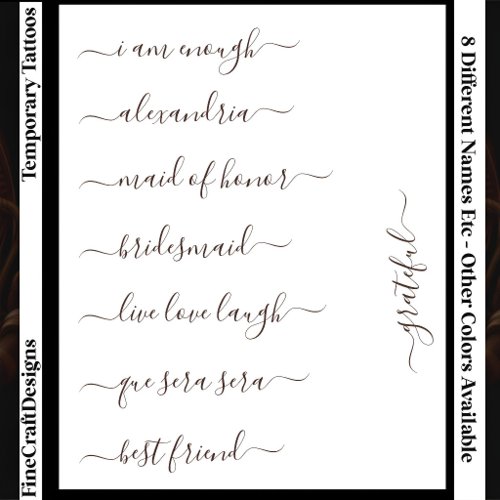 Temporary Tattoos
FineCraftDesigns
i am enough
alexandria
maid of honor
bridesmaid
live love laugh
que sera sera
best friend
grateful
8 Different Names Etc - Other Colors Available